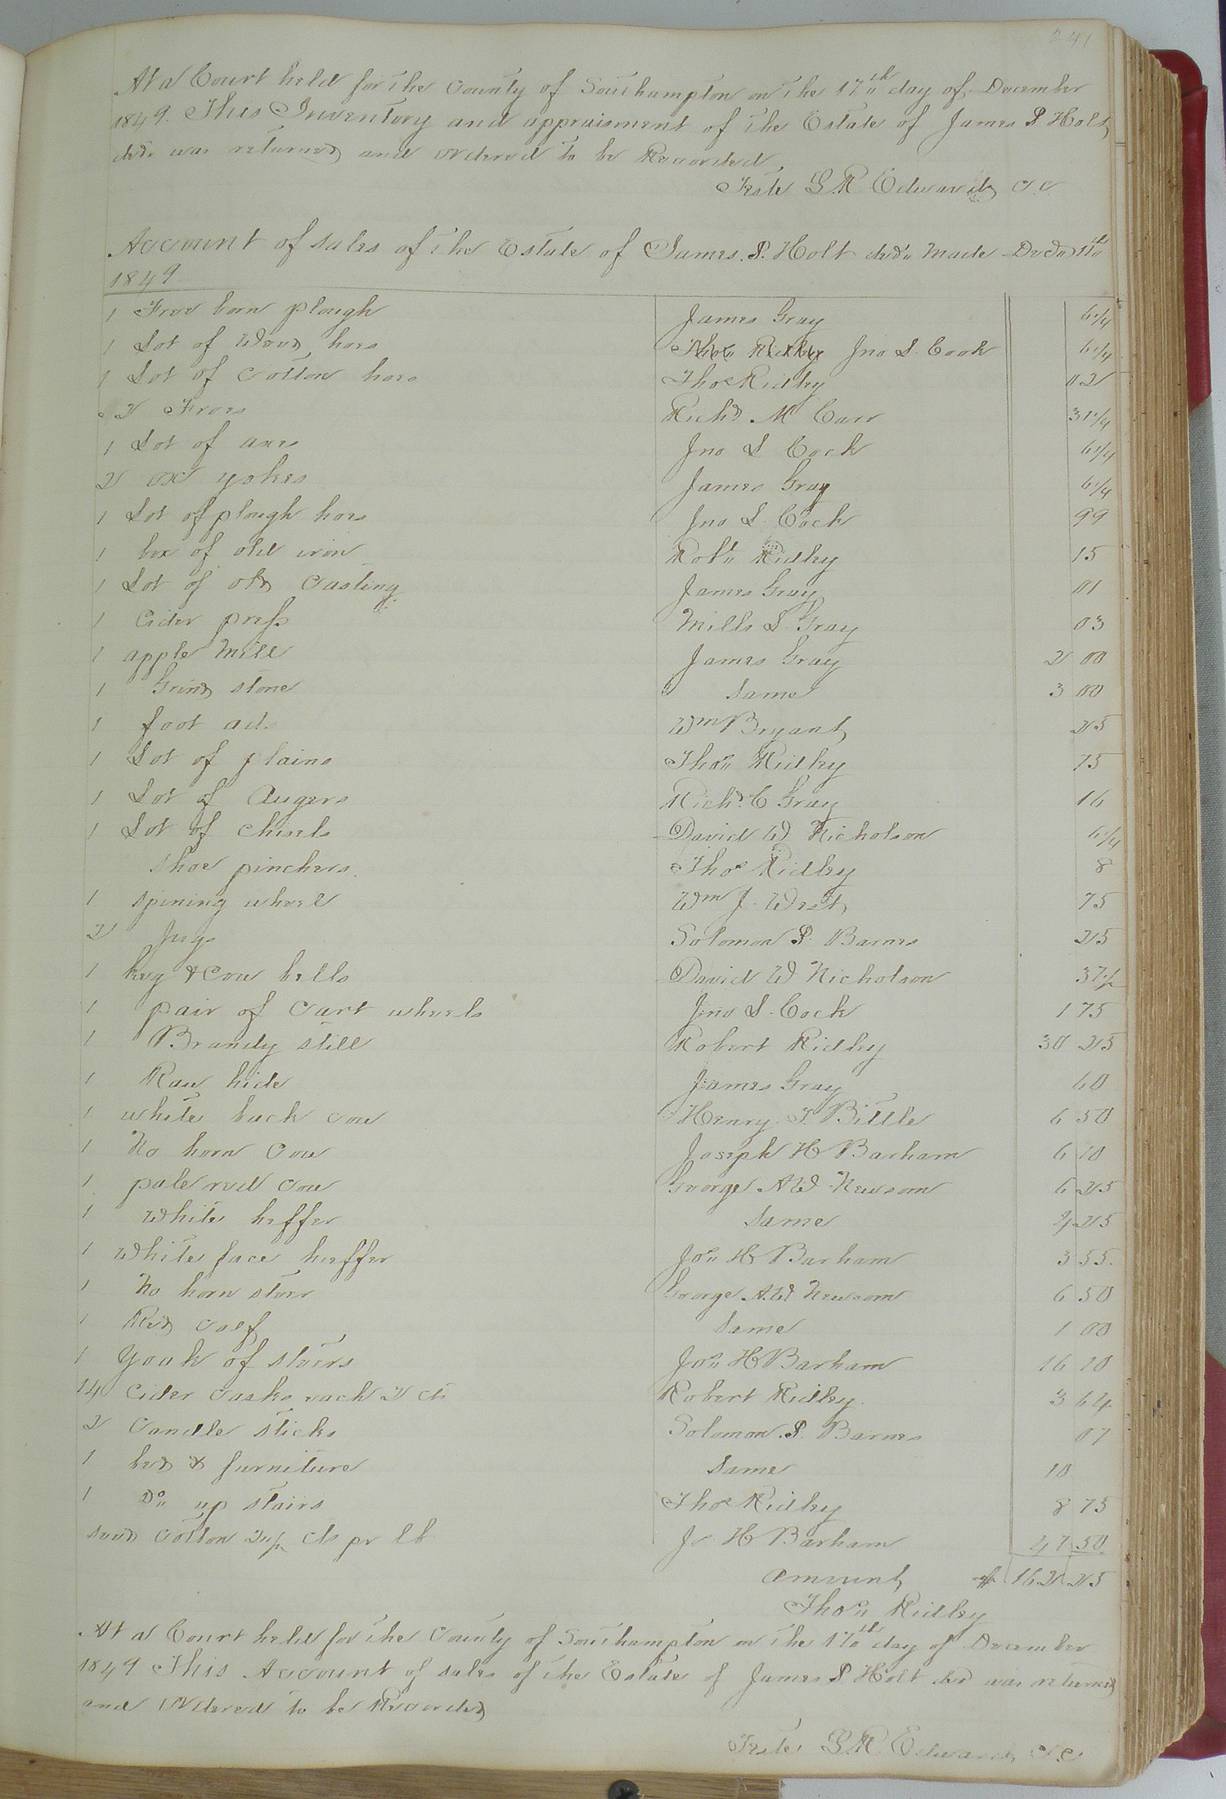 241
At a Court held for the County of Southampton on the 17th day of December
1849. This Inventory and appraisment of the Estate of James P. Holt
decd. was returned and ordered to be Recorded
Teste L R Edwards C.C
Account of sales of the Estate of James. P. Holt decd. Made Decr 11th
1849
1 Free born plough James Gray 6 1/4
1 Lot of Weed hoes Jno L. Cook 6 1/4
1 Lot of Cotton hoes Thos Ridley 02
2 Frows Richd M Carr 31 1/4
1 Lot of axes Jno L Cock 6 1/4
2 ox yokes James Gray 6 1/4
1 Lot of plough hoes Jno L. Cock 99
1 box of old iron Robt. Ridley 15
1 Lot of old Casting James Gray 01
1 Cider press Mills L Gray 03
1 apple Mill James Gray 2 00
1 Grind stone Same 3 00
1 foot ads Wm Bryant 25
1 Lot of plains Thos. Ridley 75
1 Lot of Augers Richd. C Gray 16
1 Lot of chisels David W Nicholson 6 1/4
Shoe pinchers. Thos Ridley 8
1 spining wheel Wm J. West 75
2 Jugs Solomon P. Barnes 25
1 keg & Cow bells David W Nicholson 37 1/2
1 pair of Cart wheels Jno L. Cock 1 75
1 Brandy still Robert Ridley 30 25
1 Raw hide James Gray 60
1 white back cow Henry T Bittle 6 50
1 No horn Cow Joseph H Barham 6 10
1 pale red Cow George A W Newsom 6 25
1 White heffer Same 4 25
1 White face heffer Jos. H Barham 3 55
1 No horn steer George A.W Newsom 6 50
1 Red Calf Same 1 00
1 Yoak of steers Jos. H Barham 16 10
14 Cider Casks each 26 cts Robert Ridley. 3 64
2 Candle sticks Solomon. P. Barnes 07
1 bed & furniture Same 10
1 Do. up stairs Thos Ridley 8 75
seed Cotton 2 1/2 cts pr lb Jo H Barham 47 50
Amount $ 162 25
Thos. Ridley
At a Court held for the County of Southampton on the 17th day of December
1849 This Account of sales of the Estate of James P Holt decd was returned
and Ordered to be Recorded
Teste L R Edwards C.C.